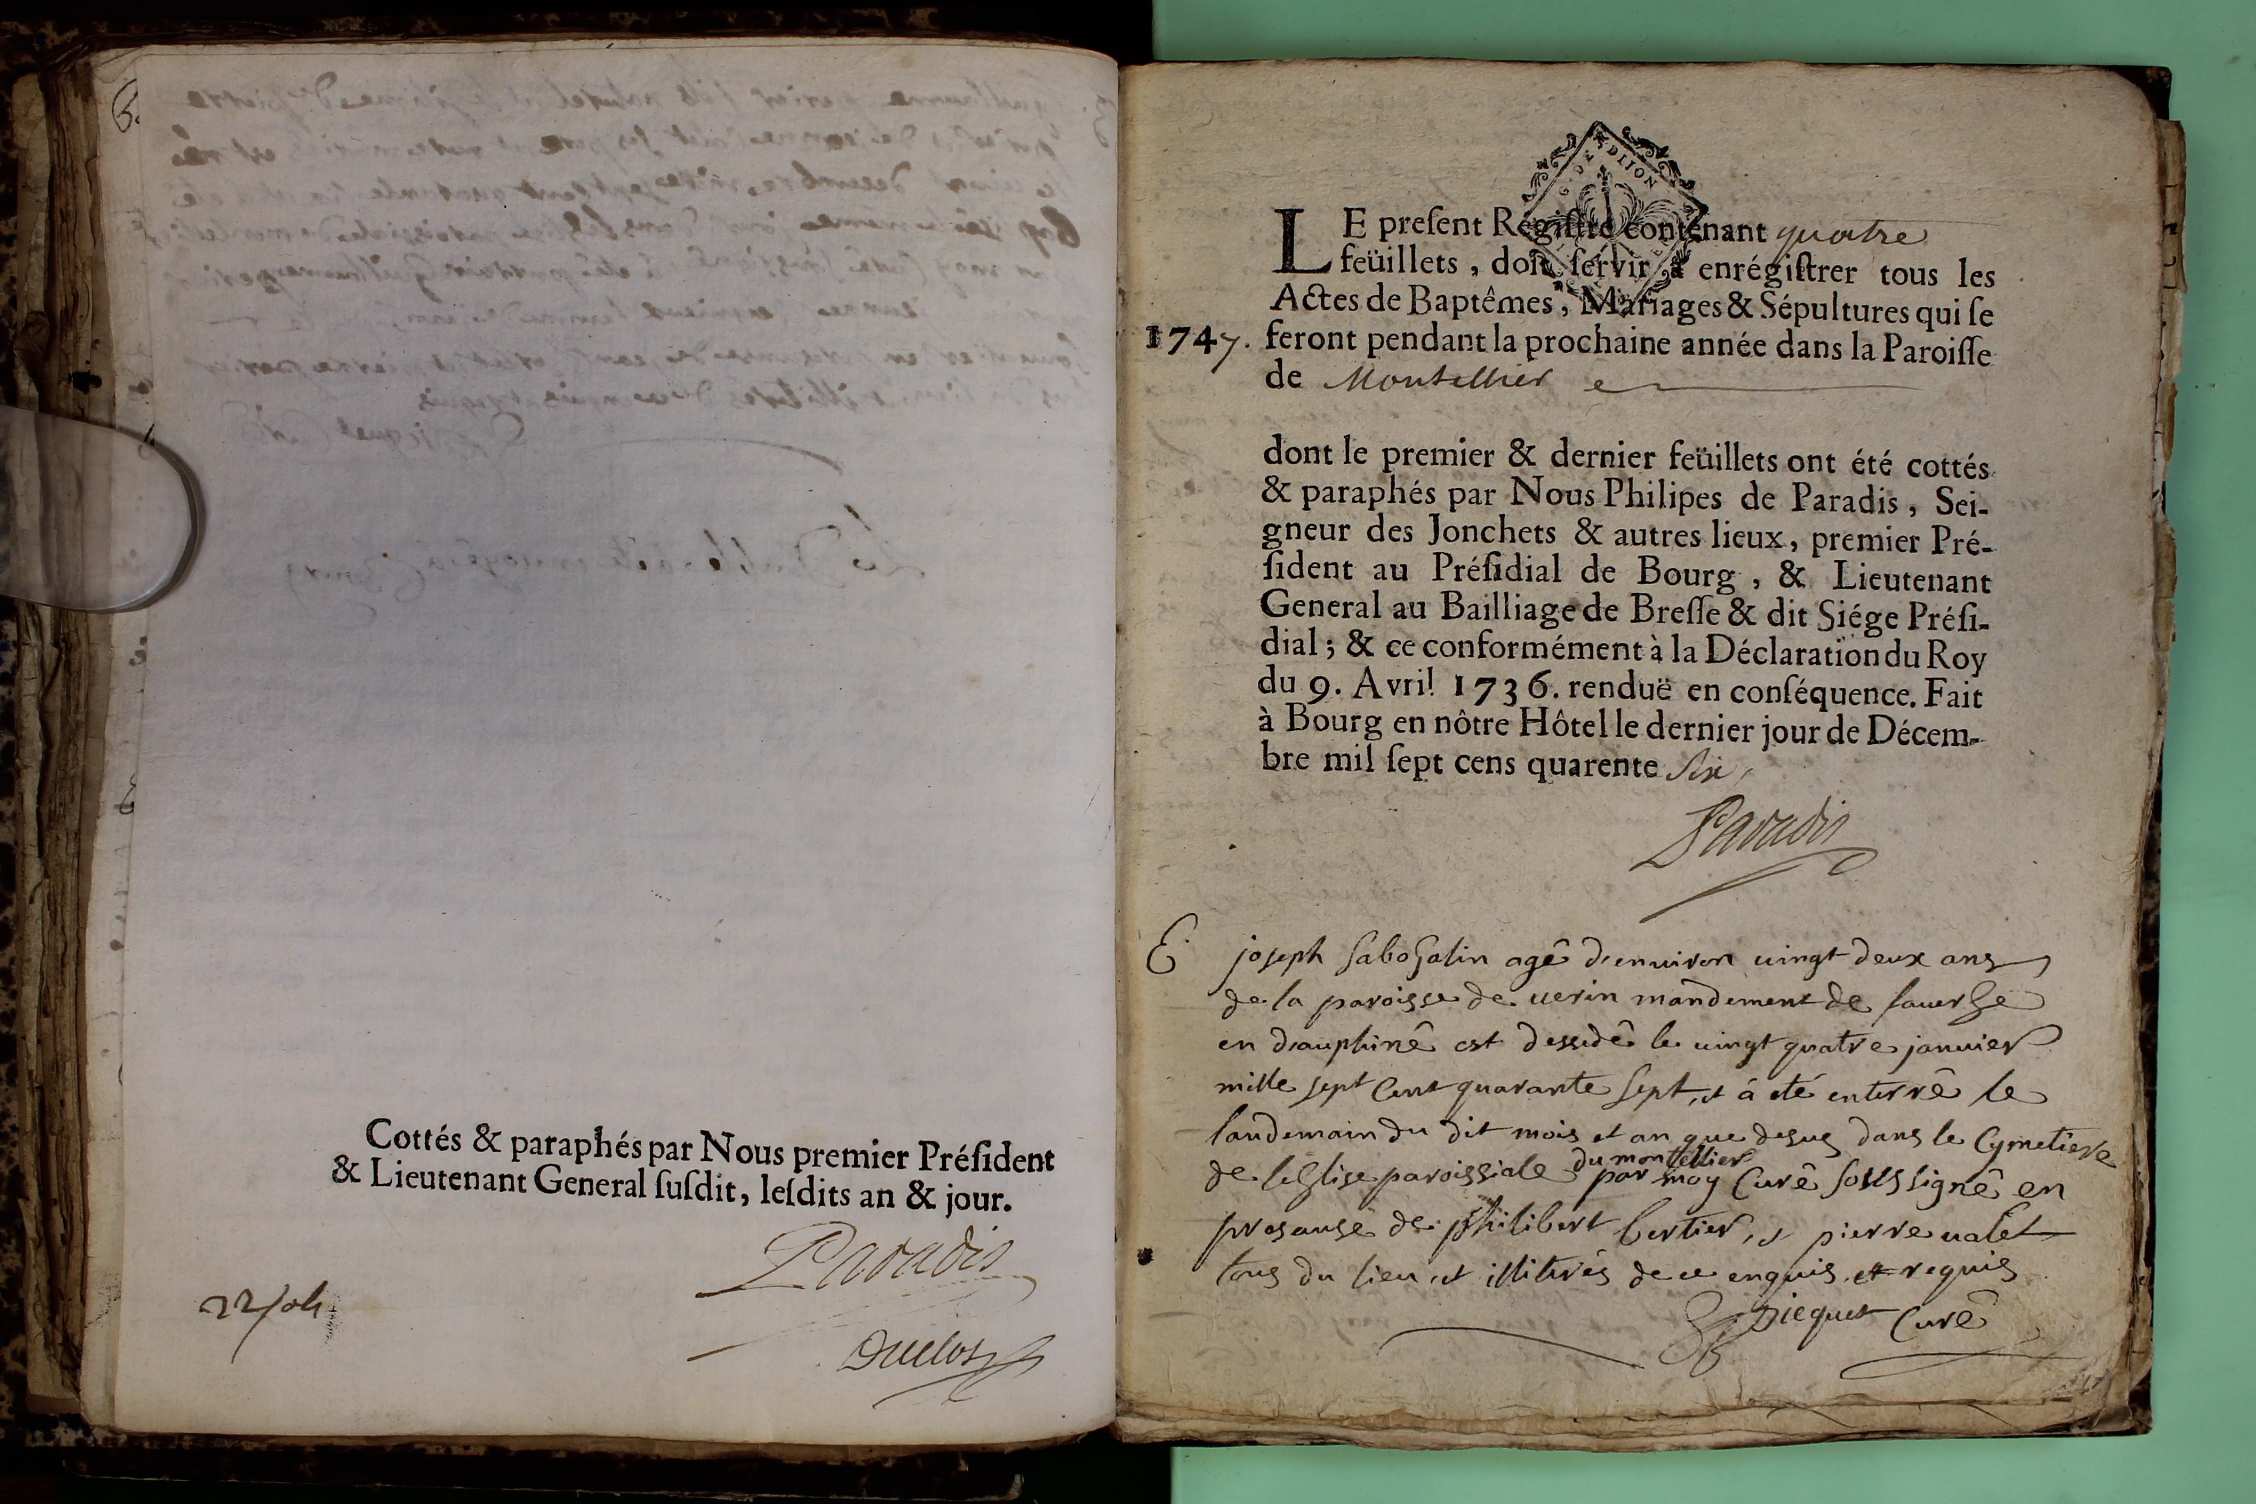 Cottés & paraphés par Nous premier Préſident
& Lieutenant General ſuſdit, leſdits an & jour.
Paradis
Duclos
G. DE DIJON
LE preſent Regiſtre contenant quatre
feüillets, doit ſervir à enrégiſtrer tous les
Actes de Baptêmes, Mariages & Sépultures qui ſe
1747. feront pendant la prochaine année dans la Paroiſſe
de Montellier
dont le premier & dernier feüillets ont été cottés
& paraphés par Nous Philipes de Paradis, Sei-
gneur des Jonchets & autres lieux, premier Pré-
ſident au Préſidial de Bourg, & Lieutenant
General au Bailliage de Breſſe & dit Siége Préſi-
dial; & ce conformément à la Déclaration du Roy
du 9. Avril 1736. renduë en conſéquence. Fait
à Bourg en nôtre Hôtel le dernier jour de Décem-
bre mil ſept cens quarente Six
Paradis
E joseph agê d'environ vingt deux ans
de la paroisse de verin mandement de
en dauphinê est dessedê le vingt quatre janvier
mille sept cent quarante sept, et á eté enterrê le
landemain du dit mois et an que desus dans le Cymetiere
de leglise paroissiale du montellier par moy Curê soussignê en
presanse de philibert bertier, et pierre valet
tous du lieu, et illiterés de ce enquis et requis
picquet Curê